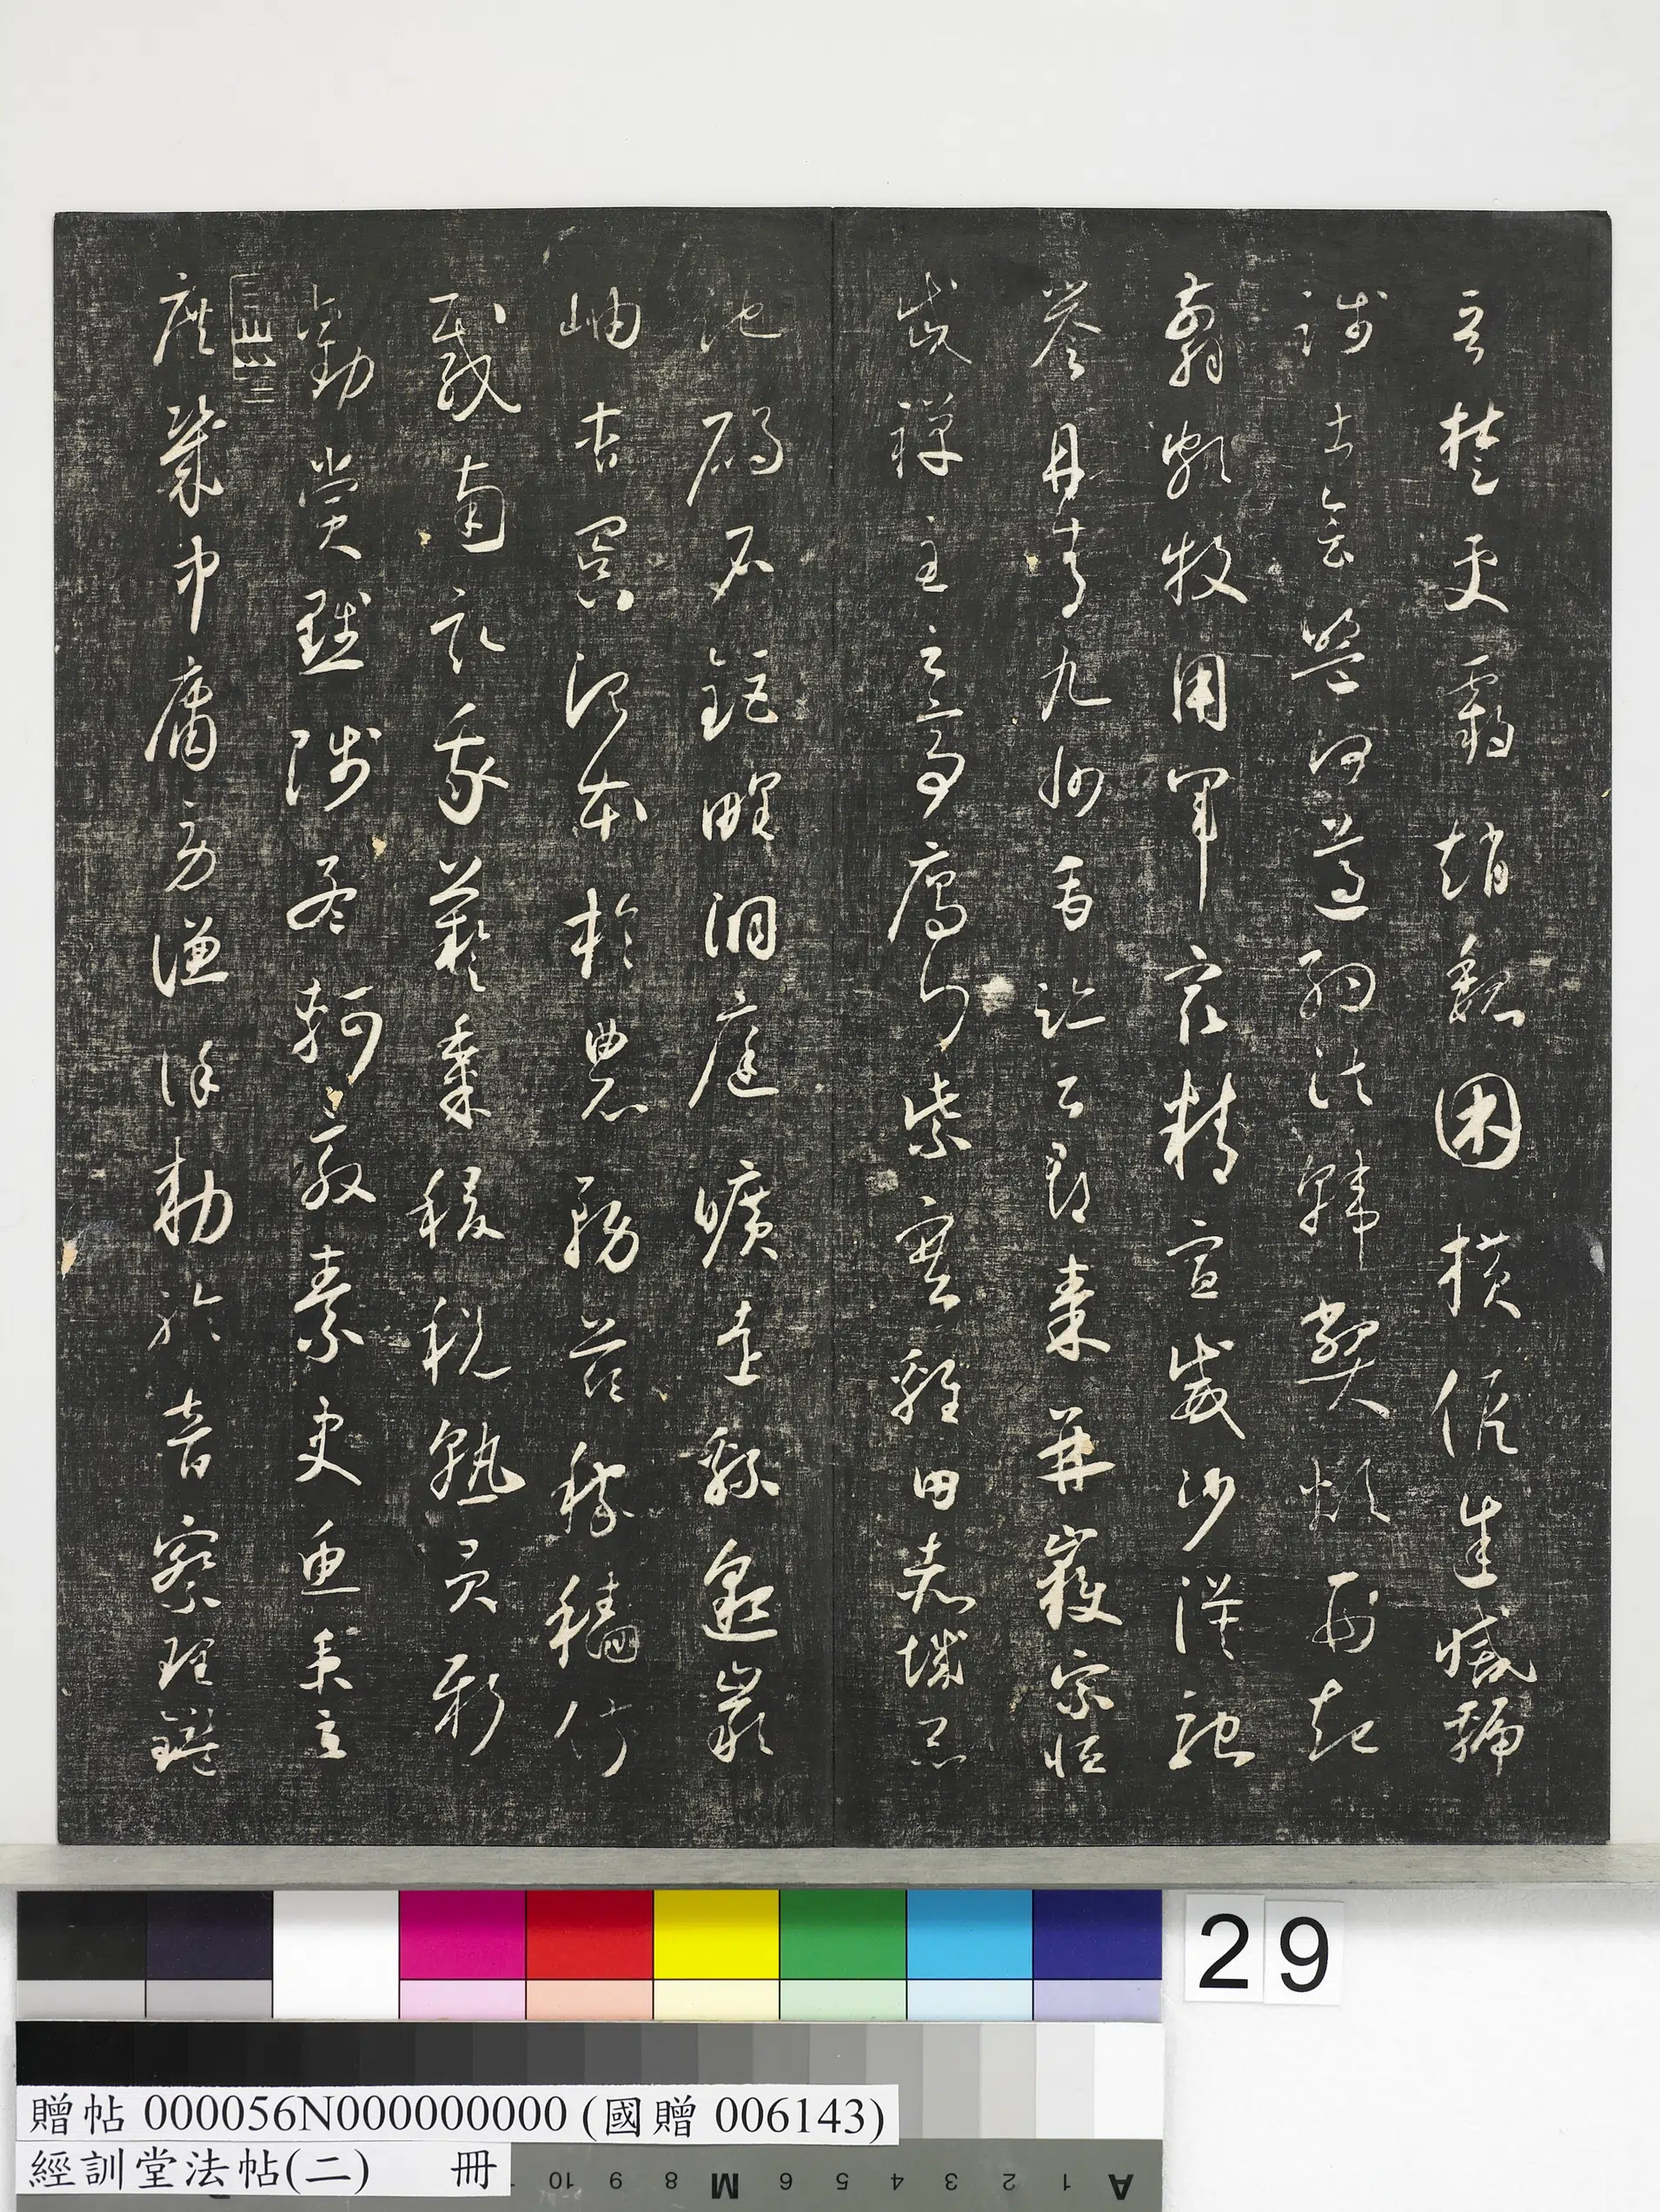 晉楚更霸趙魏困橫假途滅虢
踐土會盟何遵約法韓弊煩刑起
翦頗牧用軍最精宣威沙漠馳
譽丹青九州禹跡百郡秦并嶽宗恆
岱禪主云亭雁門紫塞雞田赤城昆
池碣石鉅野洞庭曠遠緜邈巖
岫杳冥治本於農務茲稼穡俶
載南畝我藝黍稷稅熟貢新
勸賞黜陟孟軻敦素史魚秉直
庶幾中庸勞謙謹敕聆音察理鑑
29
贈帖 000056N000000000 (國贈 006143)
經訓堂法帖(二) 冊
10 9 8 M 6 5 4 3 2 1 A